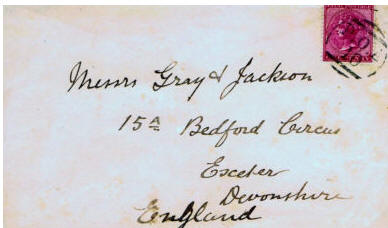 Messrs Gray & Jackson
15A Bedford Circus
Exceter
Devonshire
England